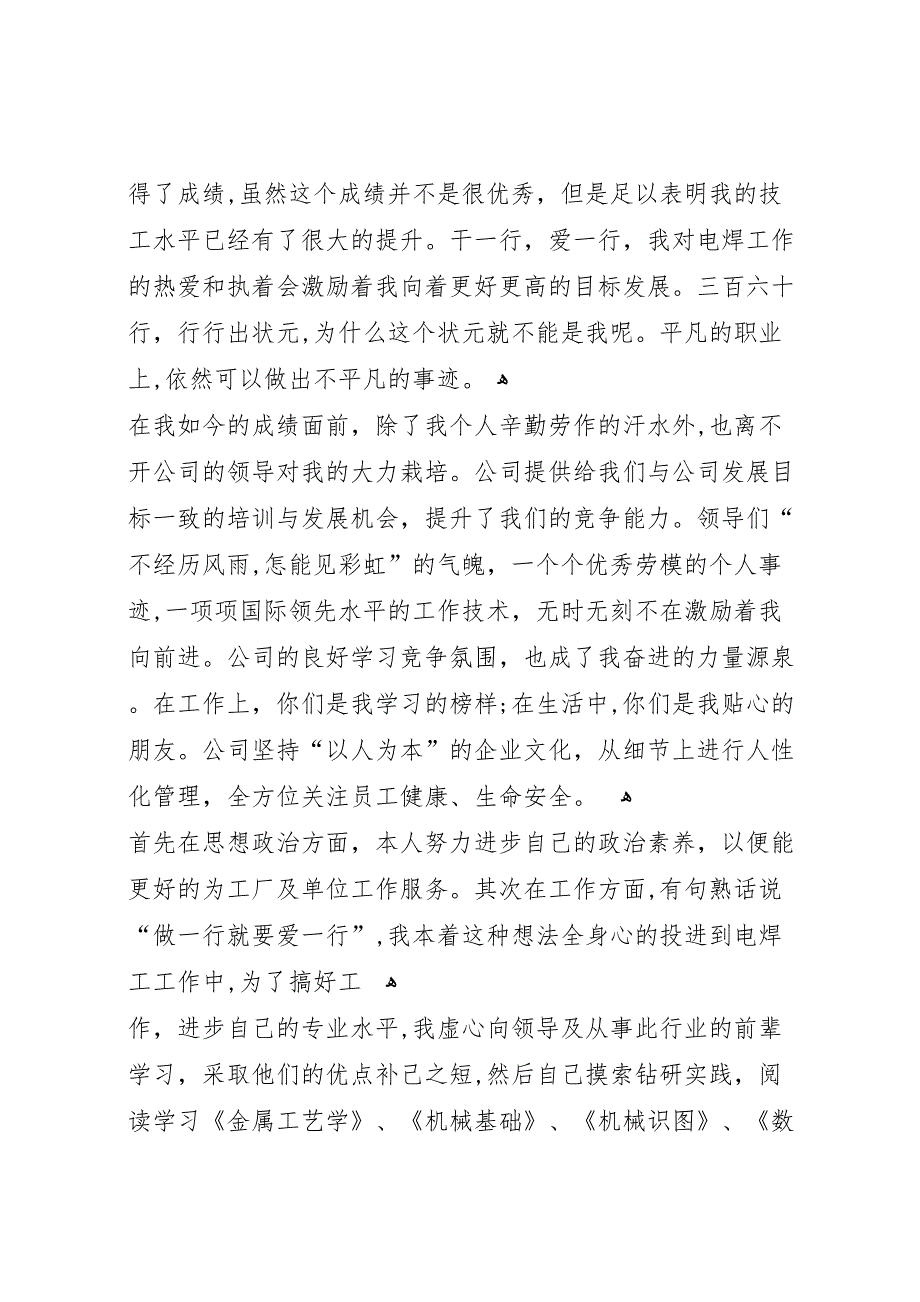 得了成绩,虽然这个成绩并不是很优秀，但是足以表明我的技
工水平已经有了很大的提升。干一行，爱一行，我对电焊工作
的热爱和执着会激励着我向着更好更高的目标发展。三百六十
行，行行出状元,为什么这个状元就不能是我呢。平凡的职业
上,依然可以做出不平凡的事迹。 ﻫ
在我如今的成绩面前，除了我个人辛勤劳作的汗水外,也离不
开公司的领导对我的大力栽培。公司提供给我们与公司发展目
标一致的培训与发展机会，提升了我们的竞争能力。领导们“
不经历风雨,怎能见彩虹”的气魄，一个个优秀劳模的个人事
迹,一项项国际领先水平的工作技术，无时无刻不在激励着我
向前进。公司的良好学习竞争氛围，也成了我奋进的力量源泉
。在工作上，你们是我学习的榜样;在生活中,你们是我贴心的
朋友。公司坚持“以人为本”的企业文化，从细节上进行人性
化管理，全方位关注员工健康、生命安全。 ﻫ
首先在思想政治方面，本人努力进步自己的政治素养，以便能
更好的为工厂及单位工作服务。其次在工作方面,有句熟话说
“做一行就要爱一行”,我本着这种想法全身心的投进到电焊
工工作中,为了搞好工 ﻫ
作，进步自己的专业水平,我虚心向领导及从事此行业的前辈
学习，采取他们的优点补己之短,然后自己摸索钻研实践，阅
读学习《金属工艺学》、《机械基础》、《机械识图》、《数